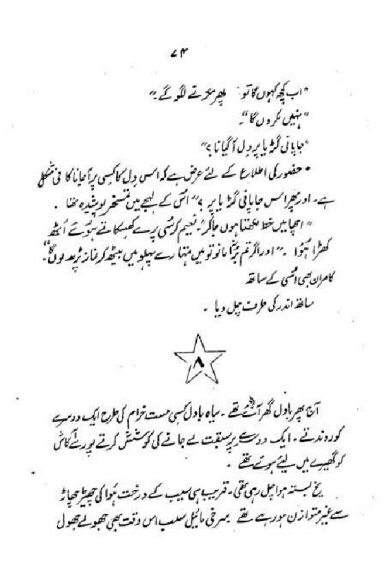 ۷۴
"اب کچھ کہوں گا تو پھر مکرنے لگو گے۔"
"نہیں مکروں گا"۔
"جاپانی گڑیا پر دل آ گیا نا؟"
"حضور کی اطلاع کے لئے عرض ہے کہ اس دل کا کسی پر آ جانا کافی مشکل
ہے۔ اور پھر اس جاپانی گڑیا پر؟" اس کے لہجے میں تمسخر پوشیدہ تھا۔
"اچھا میں خط لکھتا ہوں جا کر"۔ نعیم کرسی پرے کھسکاتے ہوئے اٹھ
کھڑا ہوا۔ "اور اگر تم برا مانو تو میں تمہارے پہلو میں بیٹھ کر نماز پڑھ لوں گا"۔
کامران بھی اسی کے ساتھ
ساتھ اندر کی طرف چل دیا۔
۸
آج پھر بادل گھر آئے تھے۔ سیاہ بادل کسی مست خرام کی طرح ایک دوسرے
کو روندتے۔ ایک دوسرے پر سبقت لے جانے کی کوشش کرتے پورے آکاش
کو گھیرے میں لئے ہوئے تھے۔
یخ بستہ ہوا چل رہی تھی۔ قریب ہی سیب کے درخت ہوا کی چھیڑ چھاڑ
سے غیر متوازن ہو رہے تھے سرخی مائیل سیب اس وقت بھی جھولے جھول